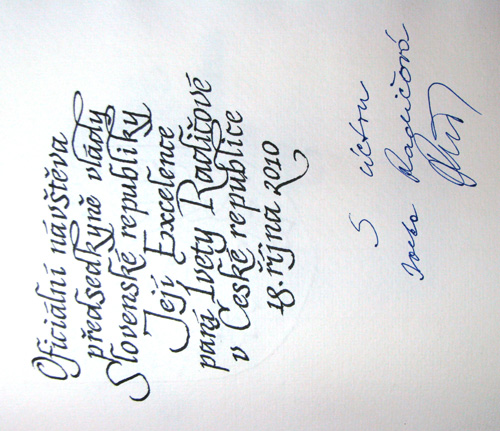 Oficiální návštěva
předsedkyně vlády
Slovenské republiky
Její Excelence
paní Ivety Radičové
v České republice
18. října 2010
S úctou
Iveta Radičová